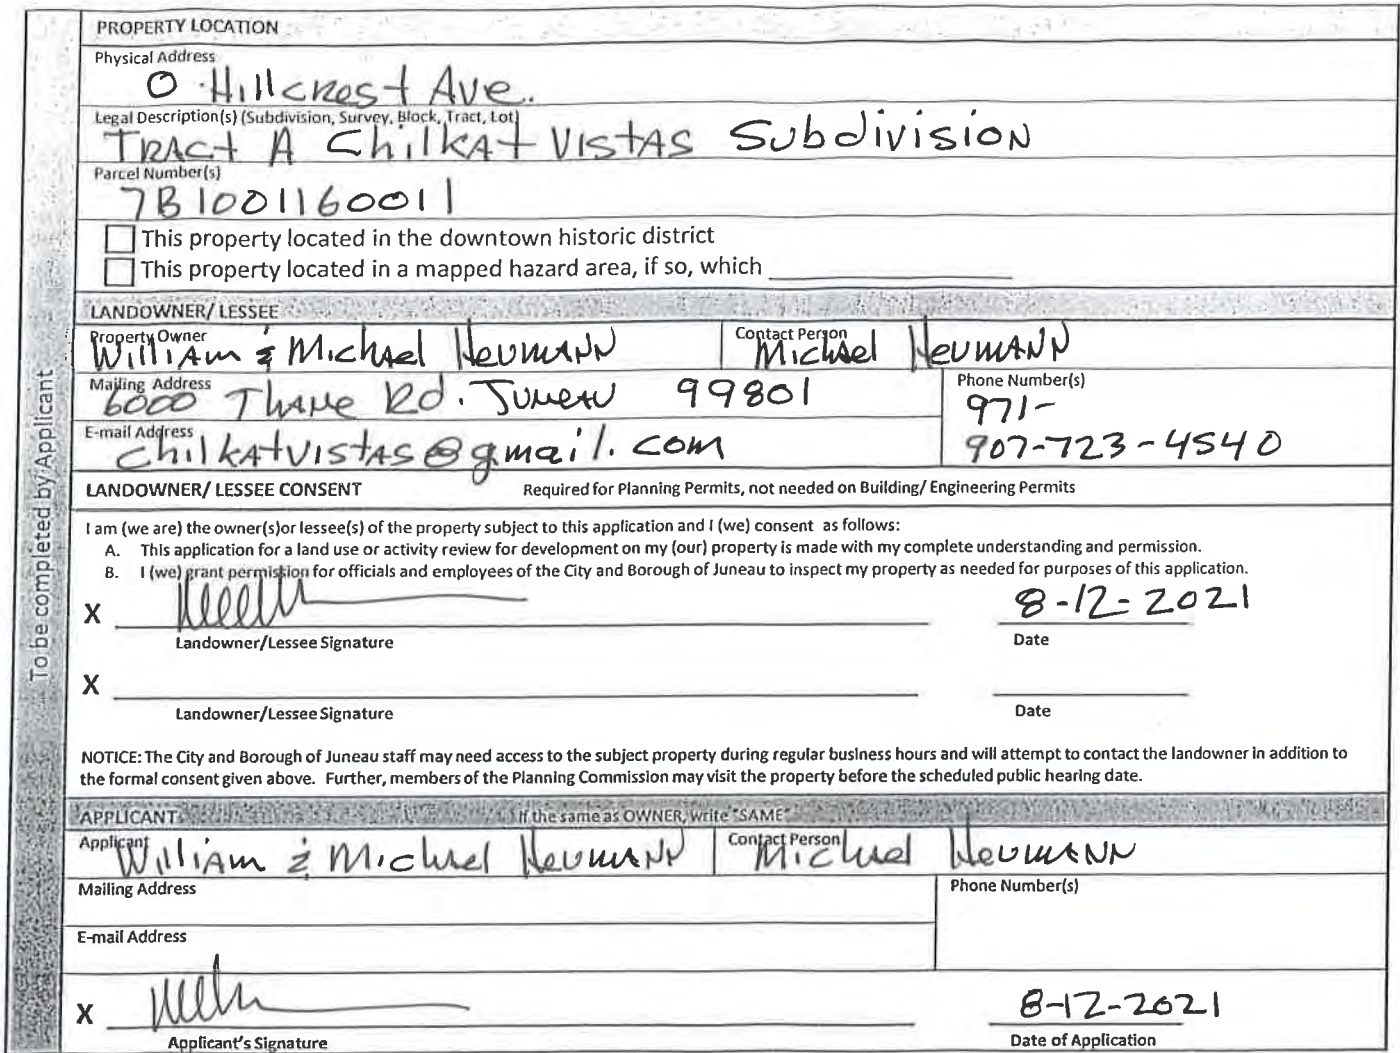 PROPERTY LOCATION
Physical Address
0 Hillcrest Ave.
Legal Description(s) (Subdivision, Survey, Block, Tract, Lot)
Tract A Chilkat Vistas Subdivision
Parcel Number(s)
7B1001160011
This property located in the downtown historic district
This property located in a mapped hazard area, if so, which
LANDOWNER/ LESSEE
Property Owner Contact Person
William & Michael Heumann Michael Heumann
Mailing Address Phone Number(s)
6000 Thane Rd. Juneau 99801 971-
E-mail Address
chilkatvistas@gmail.com 907-723-4540
LANDOWNER/ LESSEE CONSENT Required for Planning Permits, not needed on Building/ Engineering Permits
I am (we are) the owner(s)or lessee(s) of the property subject to this application and I (we) consent as follows:
A. This application for a land use or activity review for development on my (our) property is made with my complete understanding and permission.
B. I (we) grant permission for officials and employees of the City and Borough of Juneau to inspect my property as needed for purposes of this application.
X 8-12-2021
Landowner/Lessee Signature Date
X
Landowner/Lessee Signature Date
NOTICE: The City and Borough of Juneau staff may need access to the subject property during regular business hours and will attempt to contact the landowner in addition to
the formal consent given above. Further, members of the Planning Commission may visit the property before the scheduled public hearing date.
APPLICANT If the same as OWNER, write "SAME"
Applicant Contact Person
William & Michael Heumann Michael Heumann
Mailing Address Phone Number(s)
E-mail Address
X 8-12-2021
Applicant's Signature Date of Application
To be completed by Applicant